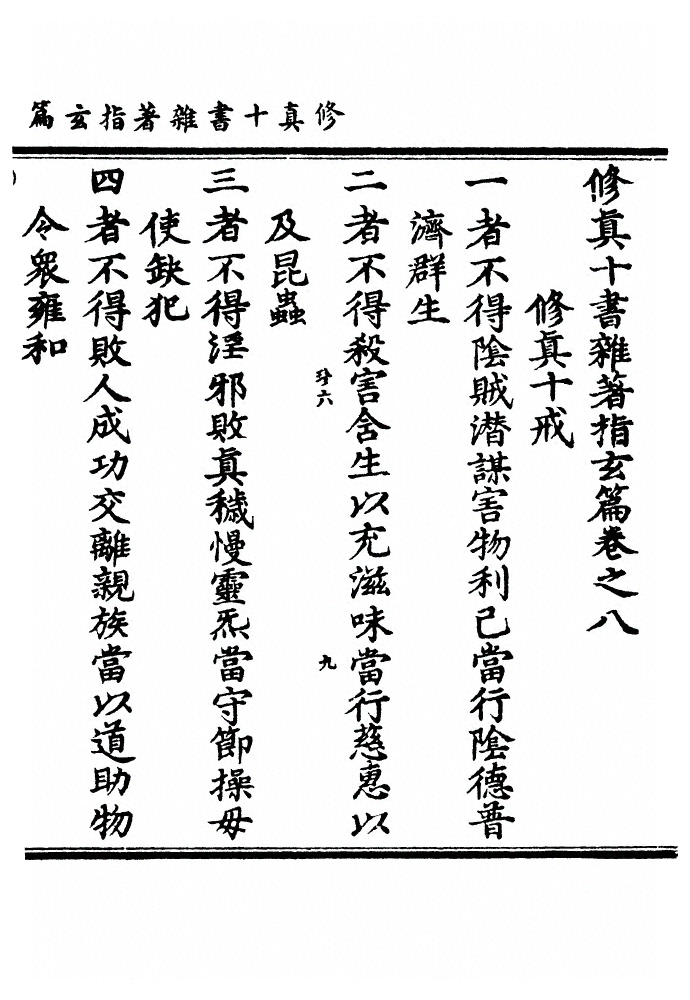 修真十書雜著指玄篇
修真十書雜著指玄篇卷之八
修真十戒
一者不得陰賊潜謀害物利己當行陰德普
濟群生
二者不得殺害含生以充滋味當行慈惠以
及昆蟲
三者不得淫邪敗真穢慢靈炁當守節操毋
使缺犯
四者不得敗人成功交離親族當以道助物
令衆雍和
九